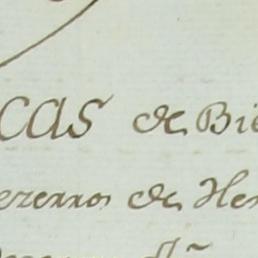 cas de Bie
ezerros de He